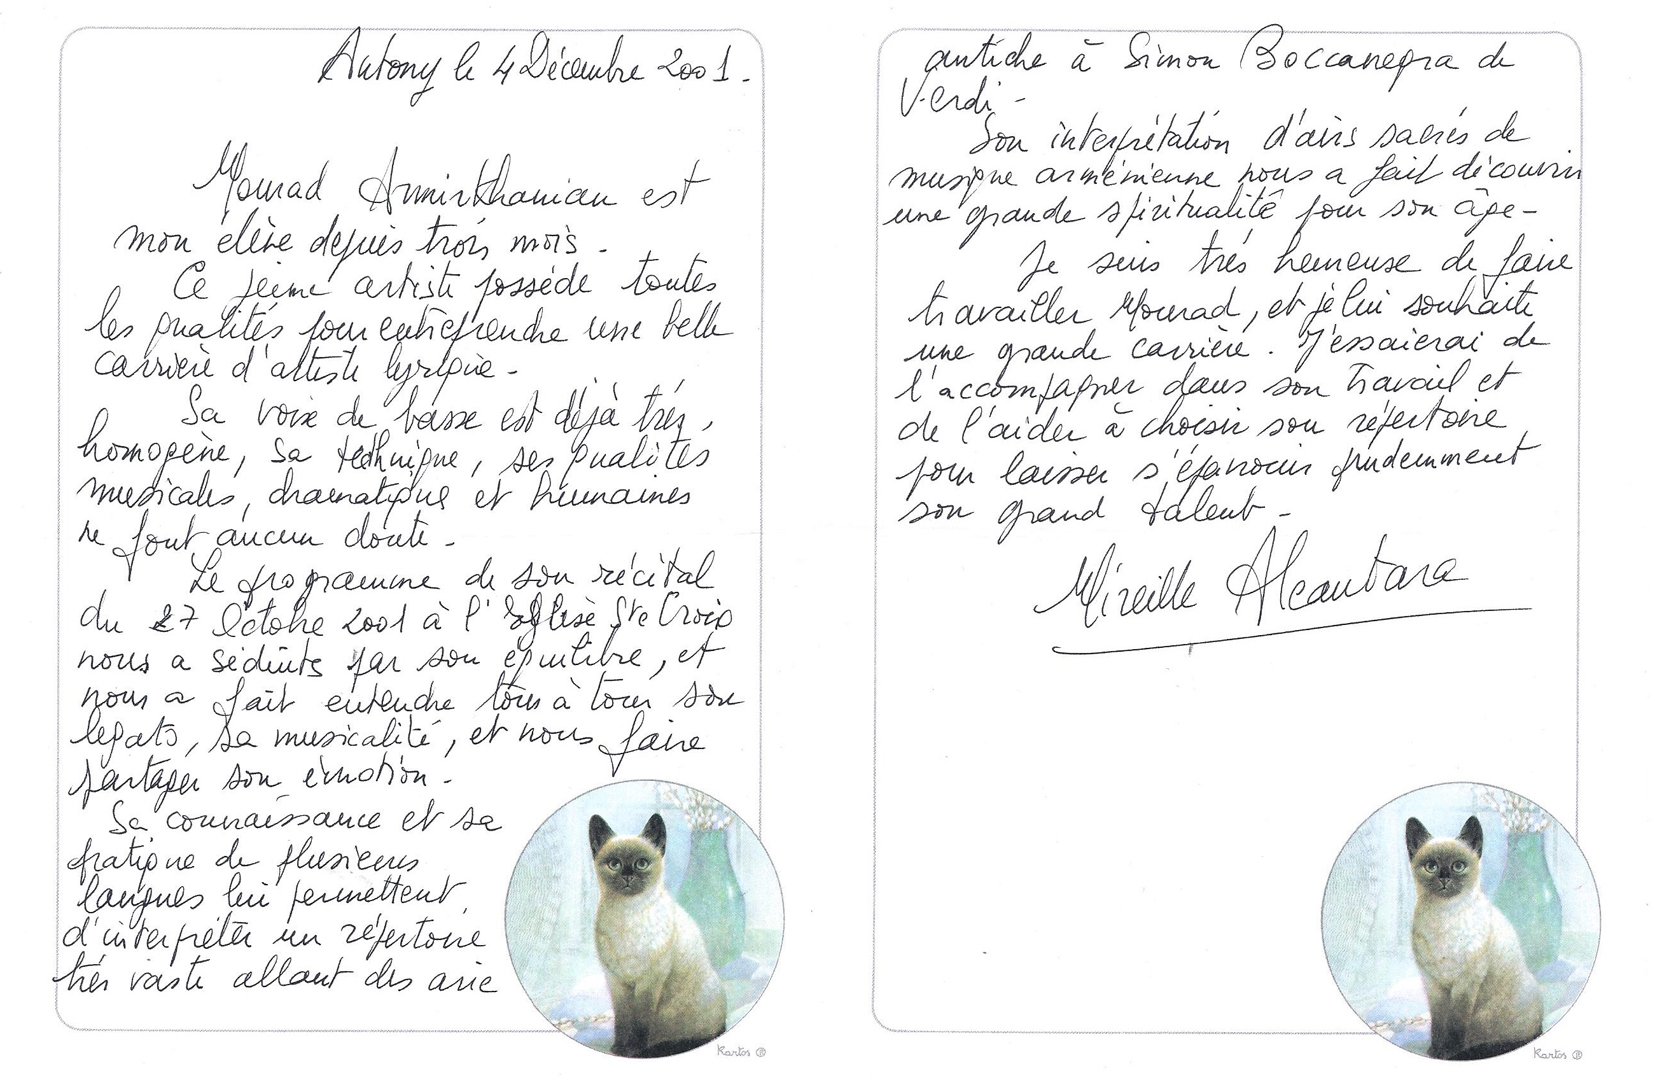 Antony le 4 Décembre 2001.
Mourad Amirkhanian est
mon élève depuis trois mois.
Ce jeune artiste possède toutes
les qualités pour entreprendre une belle
carrière d'artiste lyrique.
Sa voix de basse est déjà très
homogène, sa technique, ses qualités
musicales, dramatique et humaines
ne font aucun doute.
Le programme de son récital
du 27 Octobre 2001 à l'Eglise Ste Croix
nous a séduits par son équilibre, et
nous a fait entendre tour à tour son
legato, sa musicalité, et nous faire
partager son émotion.
Sa connaissance et sa
pratique de plusieurs
langues lui permettent
d'interpréter un répertoire
très vaste allant des arie
Kartos ®
antiche à Simon Boccanegra de
Verdi -
Son interprétation d'airs sacrés de
musique arménienne nous a fait découvrir
une grande spiritualité pour son âge -
Je suis très heureuse de faire
travailler Mourad, et je lui souhaite
une grande carrière. J'essaierai de
l'accompagner dans son travail et
de l'aider à choisir son répertoire
pour laisser s'épanouir prudemment
son grand talent -
Mireille Alcantara
Kartos ®